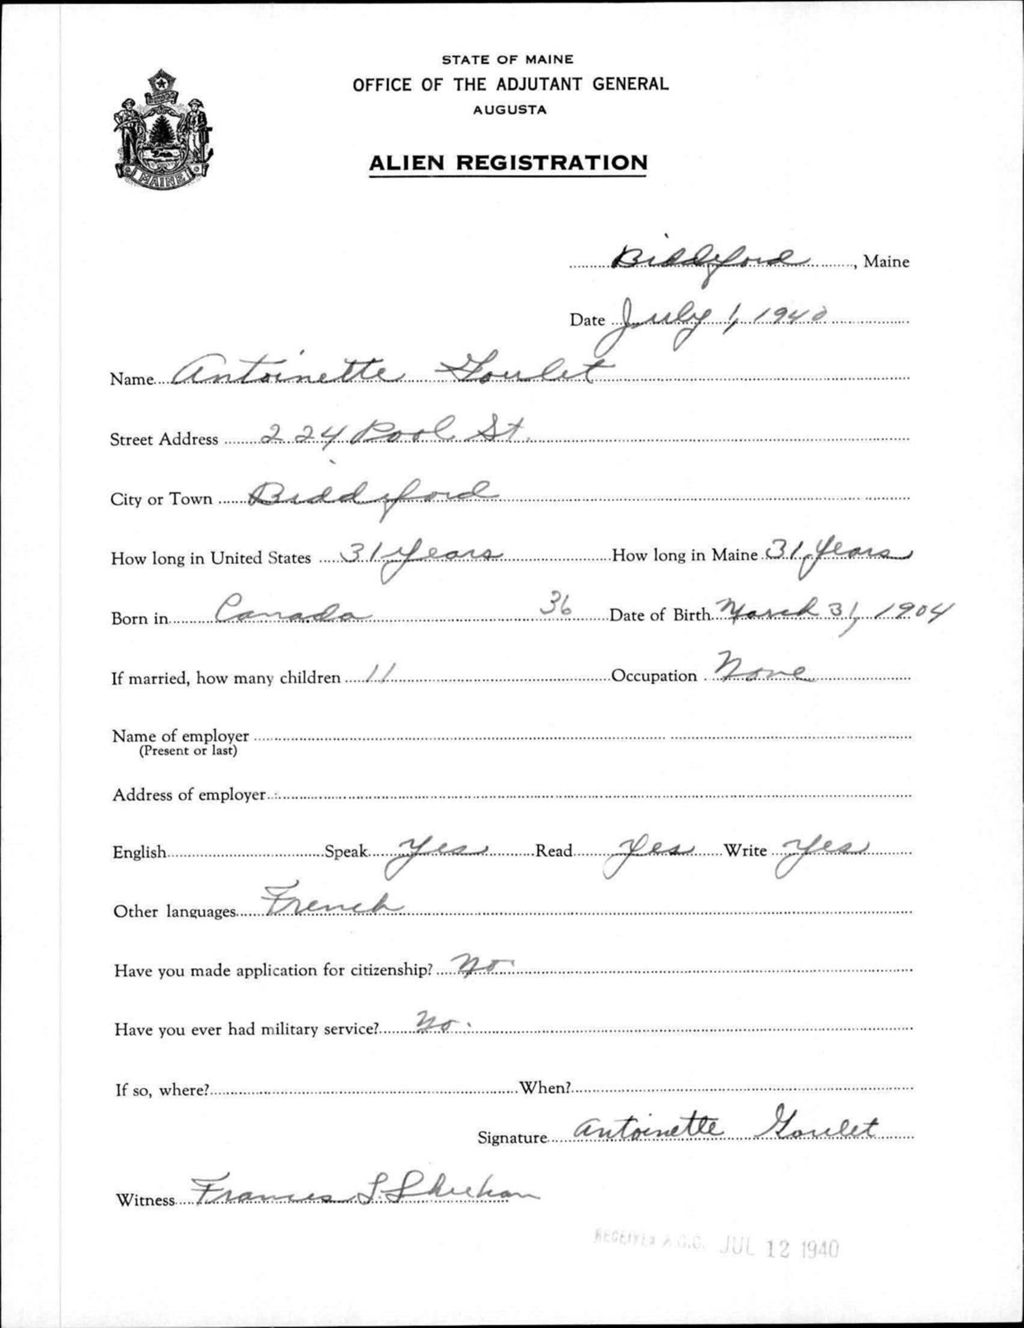 STATE OF MAINE
OFFICE OF THE ADJUTANT GENERAL
AUGUSTA
ALIEN REGISTRATION
MAINE
Biddeford, Maine
Date July 1, 1940
Name Antoinette Goulet
Street Address 224 Pool St.
City or Town Biddeford
How long in United States 31 years How long in Maine 31 years
Born in Canada 36 Date of Birth March 31, 1904
If married, how many children 11 Occupation None
Name of employer
(Present or last)
Address of employer
English Speak Yes Read Yes Write Yes
Other languages French
Have you made application for citizenship? No
Have you ever had military service? No.
If so, where? When?
Signature Antoinette Goulet
Witness Frances L. Sheehan
RECEIVED A.G.O. JUL 12 1940